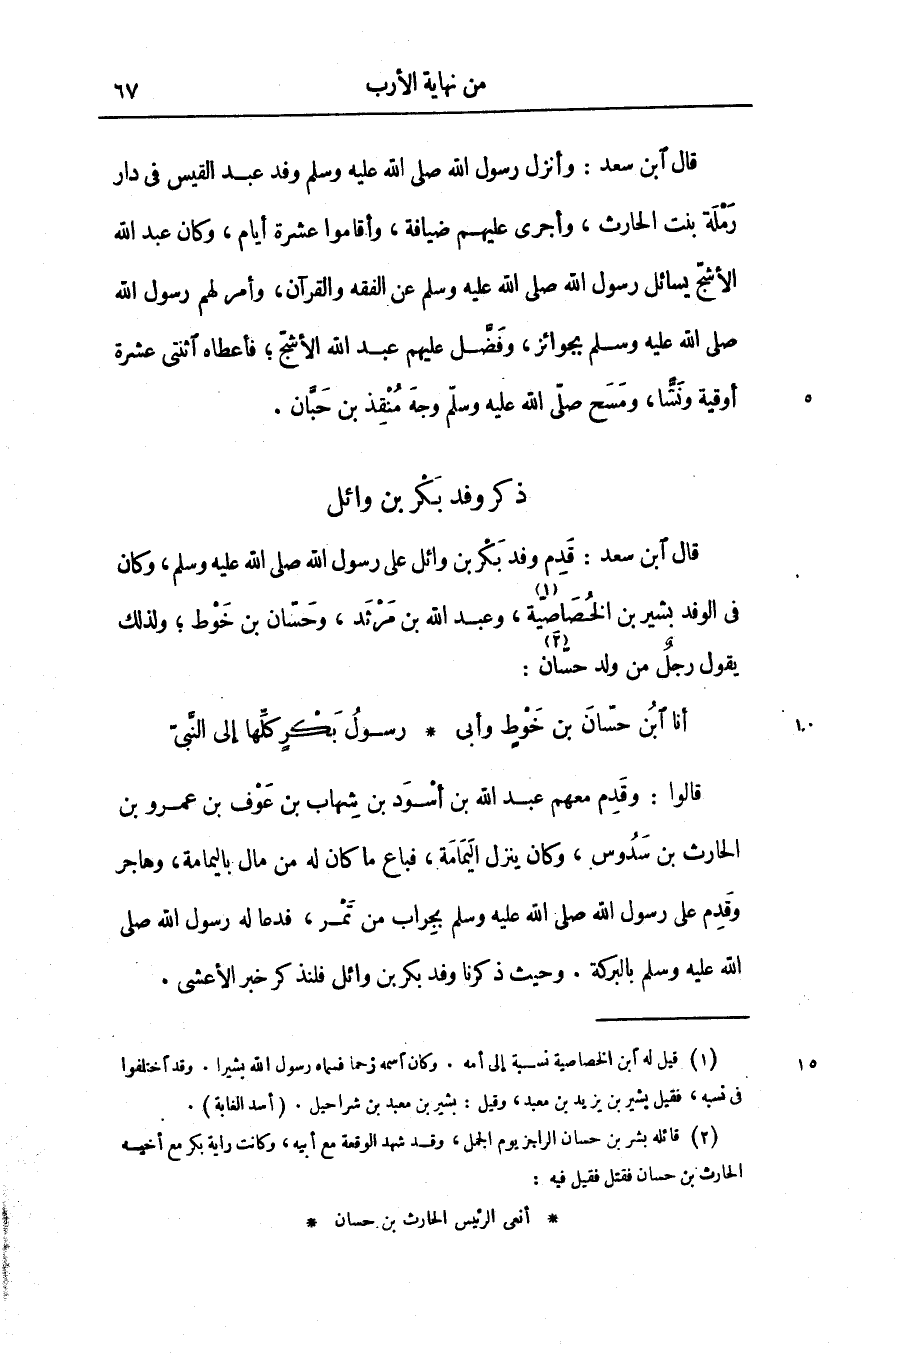 من نهاية الأرب ٦٧
قال ٱبن سعد : وأنزل رسول الله صلى الله عليه وسلم وفد عبد القيس فى دار
رَمْلَة بنت الحارث ، وأجرى عليهم ضيافة ، وأقاموا عشرة أيام ، وكان عبد الله
الأشجّ يسائل رسول الله صلى الله عليه وسلم عن الفقه والقرآن، وأمر لهم رسول الله
صلى الله عليه وسلم بجوائز ، وفَضَّل عليهم عبد الله الأشجّ ؛ فأعطاه ٱثنتى عشرة
أوقية ونَشًّا، ومَسَح صلّى الله عليه وسلّم وجهَ مُنْقِذ بن حَبَّان . ٥
ذكر وفد بَكْر بن وائل
قال ٱبن سعد : قَدِم وفد بَكْر بن وائل على رسول الله صلى الله عليه وسلم ، وكان
فى الوفد بشير بن الخُصَاصِيّة (١) ، وعبد الله بن مَرْثَد ، وحَسّان بن خَوْط ؛ ولذلك
يقول رجلٌ من ولد حسّان (٢) :
أنا ٱبنُ حسّانَ بن خَوْطٍ وأبى * رسولُ بَكْرٍ كلِّها إلى النَّبىّ ١٠
قالوا : وقَدِم معهم عبد الله بن أَسْوَد بن شِهاب بن عَوْف بن عمرو بن
الحارث بن سَدُوس ، وكان ينزل اليَمَامَة ، فباع ما كان له من مال باليمامة ، وهاجر
وقَدِم على رسول الله صلى الله عليه وسلم بجِراب من تَمْر ، فدعا له رسول الله صلى
الله عليه وسلم بالبركة . وحيث ذكرنا وفد بكر بن وائل فلنذكر خبر الأعشى .
(١) قيل له ٱبن الخصاصية نسبة إلى أمه . وكان ٱسمه زحما فسماه رسول الله بشيرا . وقد ٱختلفوا ١٥
فى نسبه ، فقيل بشير بن يزيد بن معبد ، وقيل : بشير بن معبد بن شراحيل . (أسد الغابة) .
(٢) قائله بشر بن حسان الراجز يوم الجمل ، وقد شهد الوقعة مع أبيه ، وكانت راية بكر مع أخيه
الحارث بن حسان فقتل فقيل فيه :
* أنعى الرئيس الحارث بن حسان *